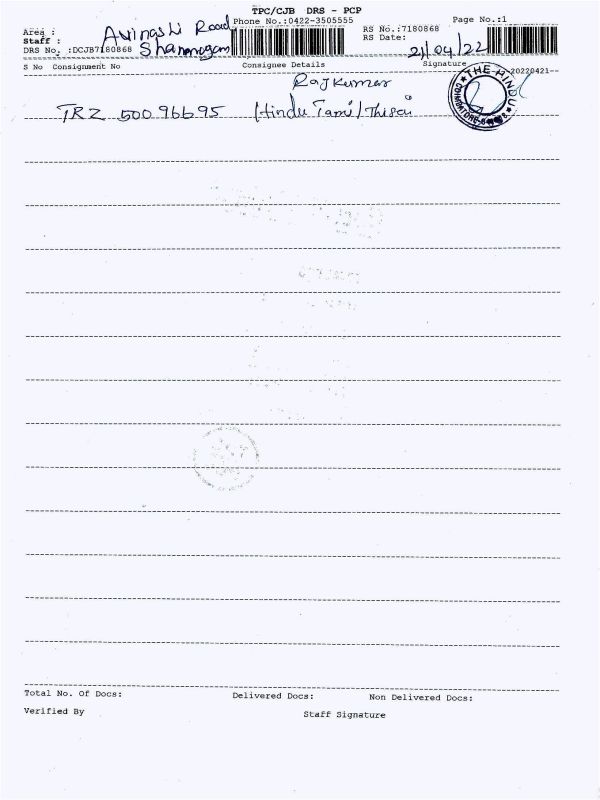 TPC/CJB DRS - PCP
Area : Avinashi Road Phone No.:0422-3505555 RS No.:7180868 Page No.:1
Staff : Shanmugam RS Date: 21/04/22
DRS No. :DCJB7180868
S No Consignment No Consignee Details Signature --20220421--
Rajkumar
TRZ 50096695 Hindu Tamil Thisai
THE HINDU
Total No. Of Docs: Delivered Docs: Non Delivered Docs:
Verified By Staff Signature